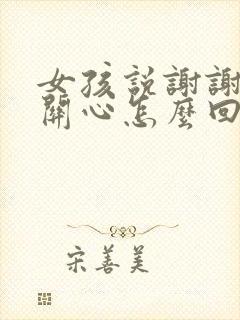 女孩説謝謝
關心怎麼回
宋善美